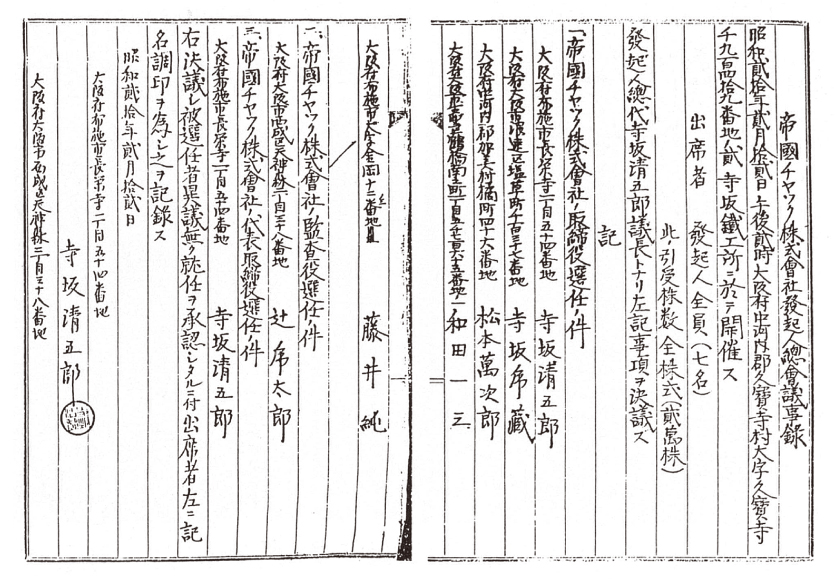 帝國チヤツク株式會社發起人總會議事録
昭和貳拾年貳月拾貳日午後貳時大阪府中河内郡久寳寺村大字久寳寺
千九百四拾九番地ノ貳 寺坂鐵工所ニ於テ開催ス
出席者 發起人全員(七名)
此ノ引受株數 全株式(貳萬株)
發起人總代寺坂清五郎議長トナリ左記事項ヲ決議ス
記
一、帝國チヤツク株式會社ノ取締役選任ノ件
大阪府布施市長栄寺二丁目五十四番地 寺坂清五郎
大阪府大阪市浪速區塩草町千百三十七番地 寺坂常藏
大阪府中河内郡加美村橘町四十六番地 松本萬次郎
和田一三
大阪府布施市大字金岡十二番地 藤井純
二、帝國チヤツク株式會社ノ監査役選任ノ件
大阪府大阪市西成區天神森二丁目三十八番地 辻常太郎
三、帝國チヤツク株式會社ノ代表取締役選任ノ件
大阪府布施市長栄寺二丁目五十四番地 寺坂清五郎
右決議シ被選任者異議無ク就任ヲ承認シタルニ付出席者左ニ記
名調印ヲ為シ之ヲ記録ス
昭和貳拾年貳月拾貳日
大阪府布施市長栄寺二丁目五十四番地
寺坂清五郎
大阪府大阪市西成區天神森二丁目三十八番地